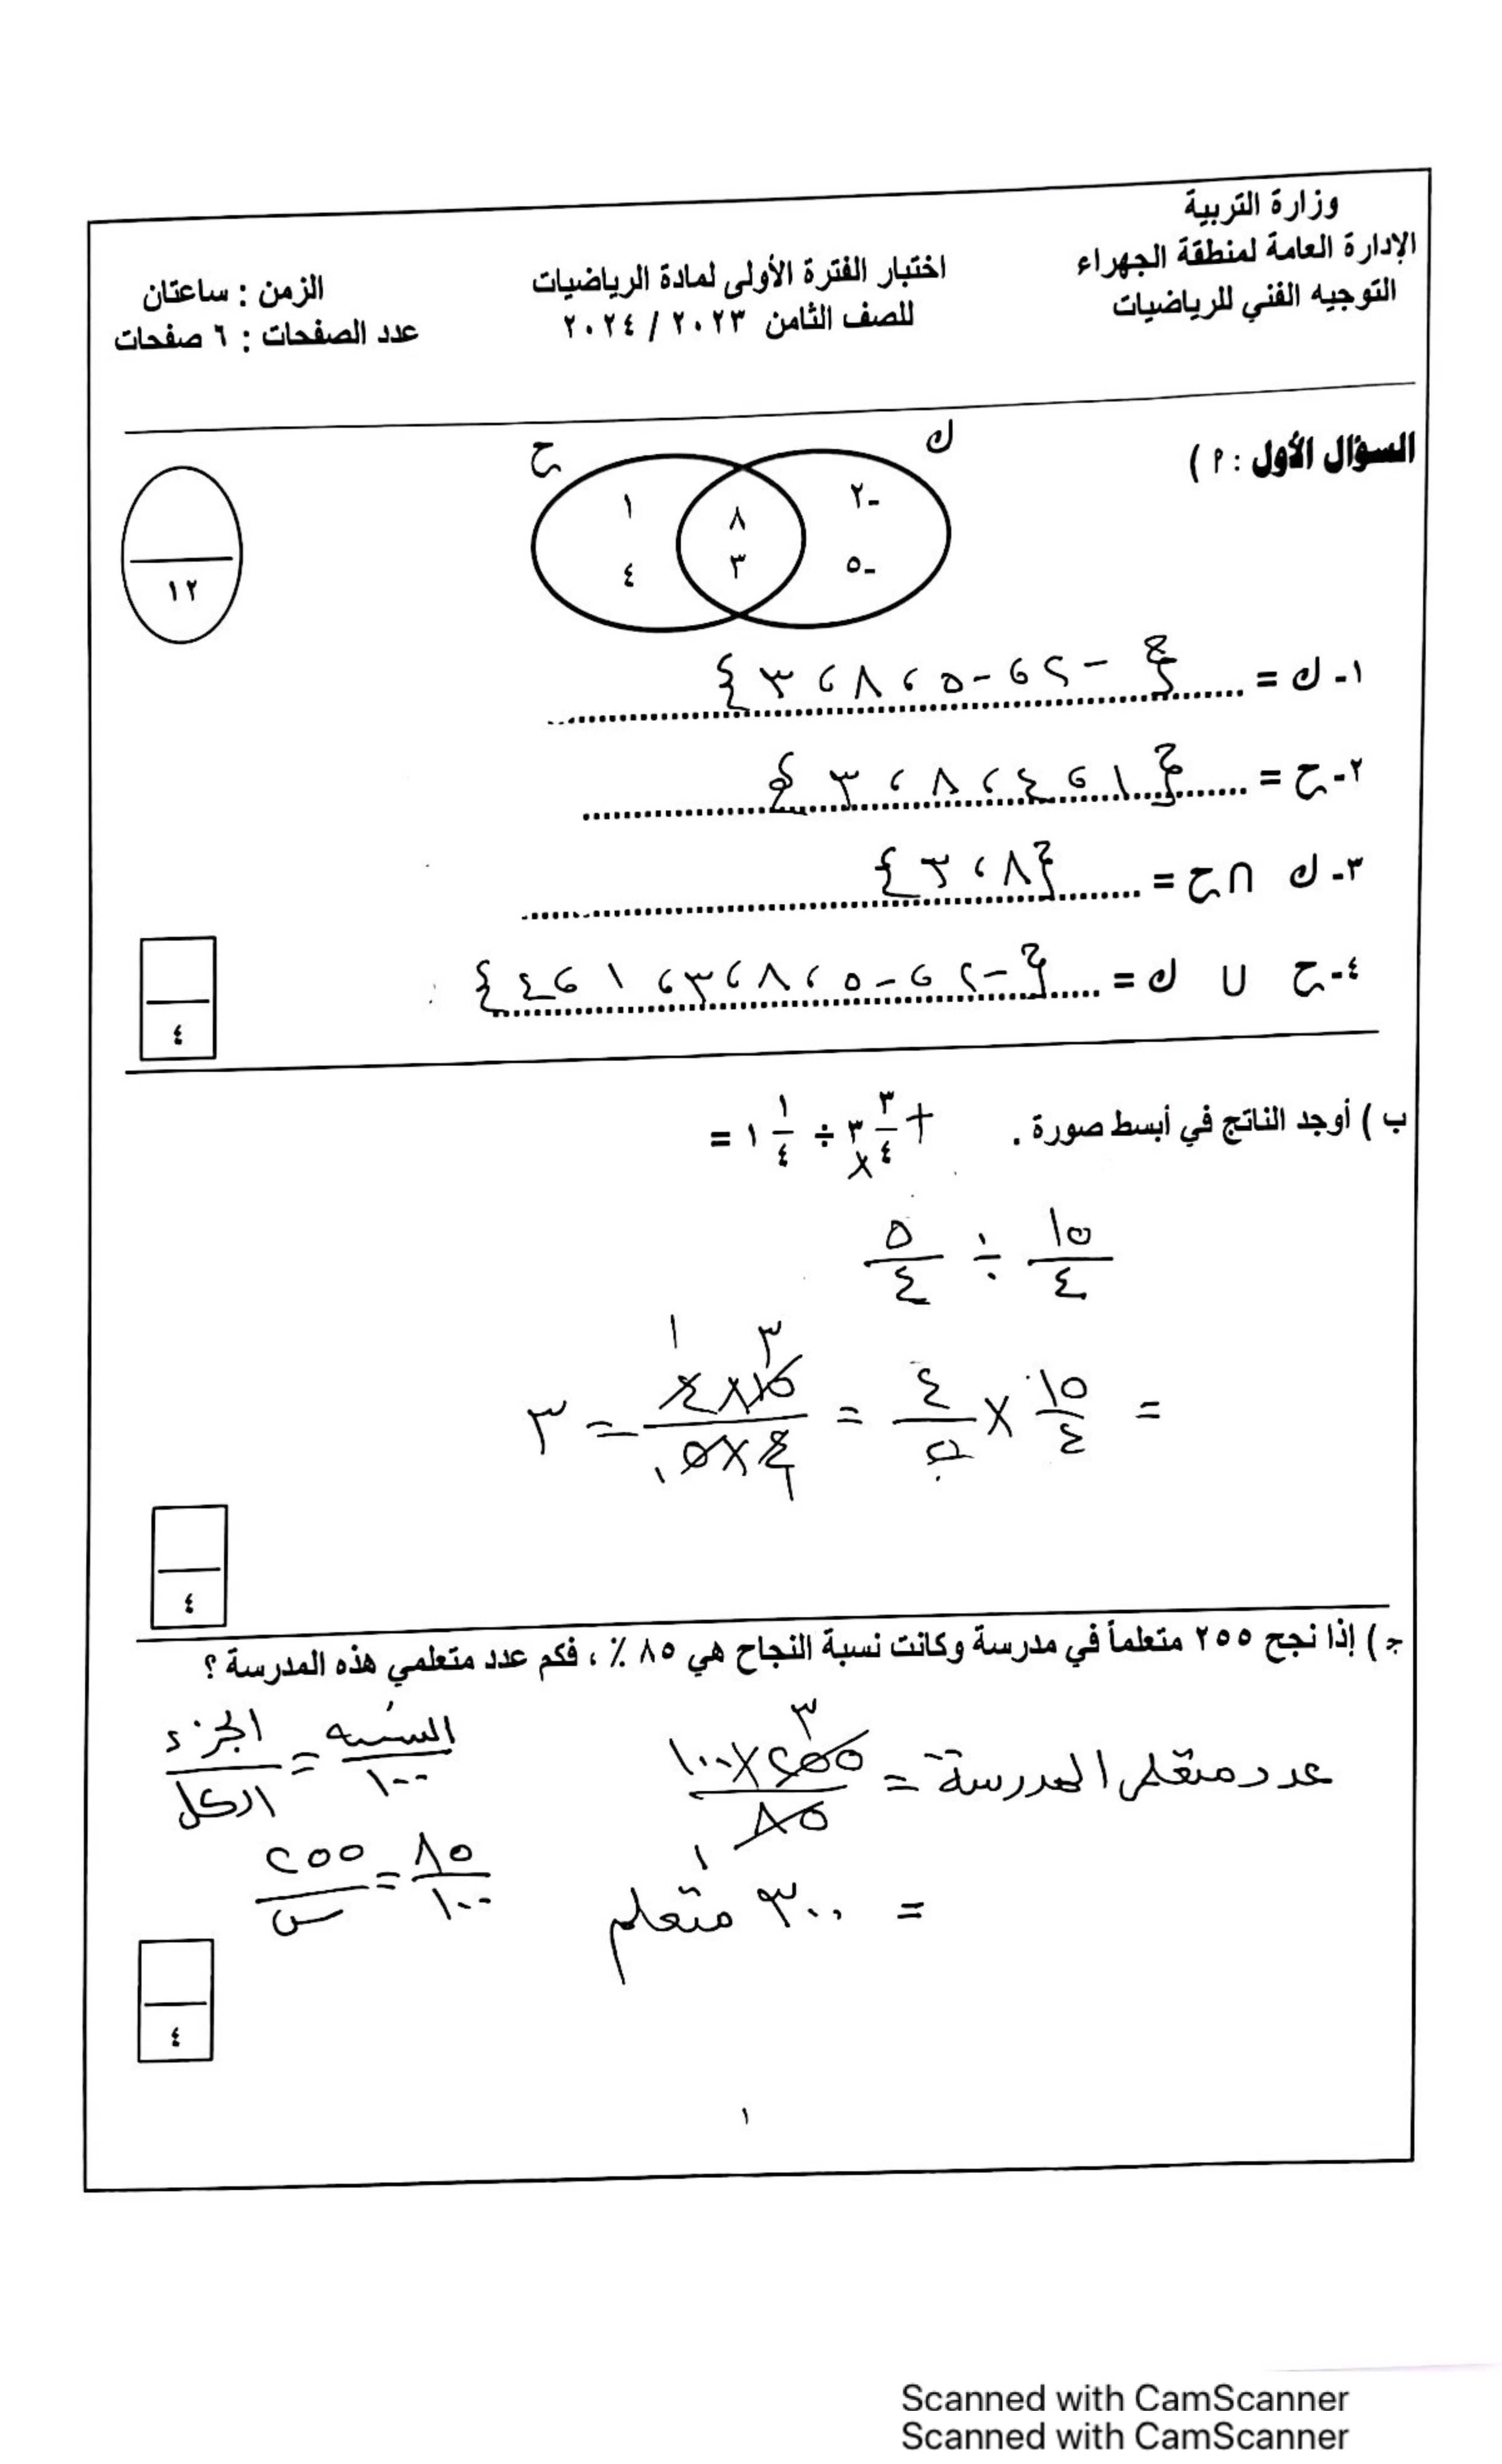 وزارة التربية
الإدارة العامة لمنطقة الجهراء
التوجيه الفني للرياضيات
اختبار الفترة الأولى لمادة الرياضيات
للصف الثامن ٢٠٢٣ / ٢٠٢٤
الزمن : ساعتان
عدد الصفحات : ٦ صفحات
السؤال الأول : ٩ )
ك
ح
-٢
٨
١
-٥
٣
٤
١٢
١- ك = { -٢ ، -٥ ، ٨ ، ٣ }
٢- ح = { ١ ، ٤ ، ٨ ، ٣ }
٣- ك ∩ ح = { ٨ ، ٣ }
٤- ح ∪ ك = { -٢ ، -٥ ، ٨ ، ٣ ، ١ ، ٤ }
٤
ب ) أوجد الناتج في أبسط صورة . ٣ ٣/٤ ÷ ١ ١/٤ =
١٥/٤ ÷ ٥/٤
= ١٥/٤ × ٤/٥ = ١٥×٤/٤×٥ = ٣
٤
ج ) إذا نجح ٢٥٥ متعلماً في مدرسة وكانت نسبة النجاح هي ٨٥ ٪ ، فكم عدد متعلمي هذه المدرسة ؟
عدد متعلمي المدرسة = ٢٥٥×١٠٠/٨٥
النسبة/١٠٠ = الجزء/الكل
= ٣٠٠ متعلم
٨٥/١٠٠ = ٢٥٥/س
٤
١
Scanned with CamScanner
Scanned with CamScanner